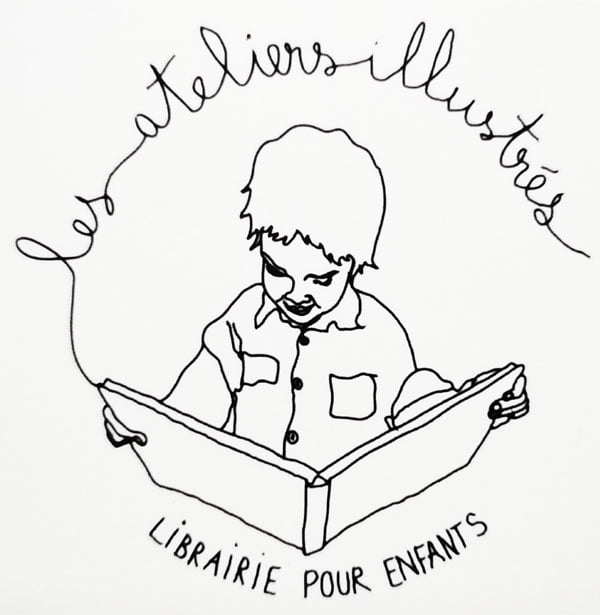 les ateliers illustrés
LIBRAIRIE POUR ENFANTS